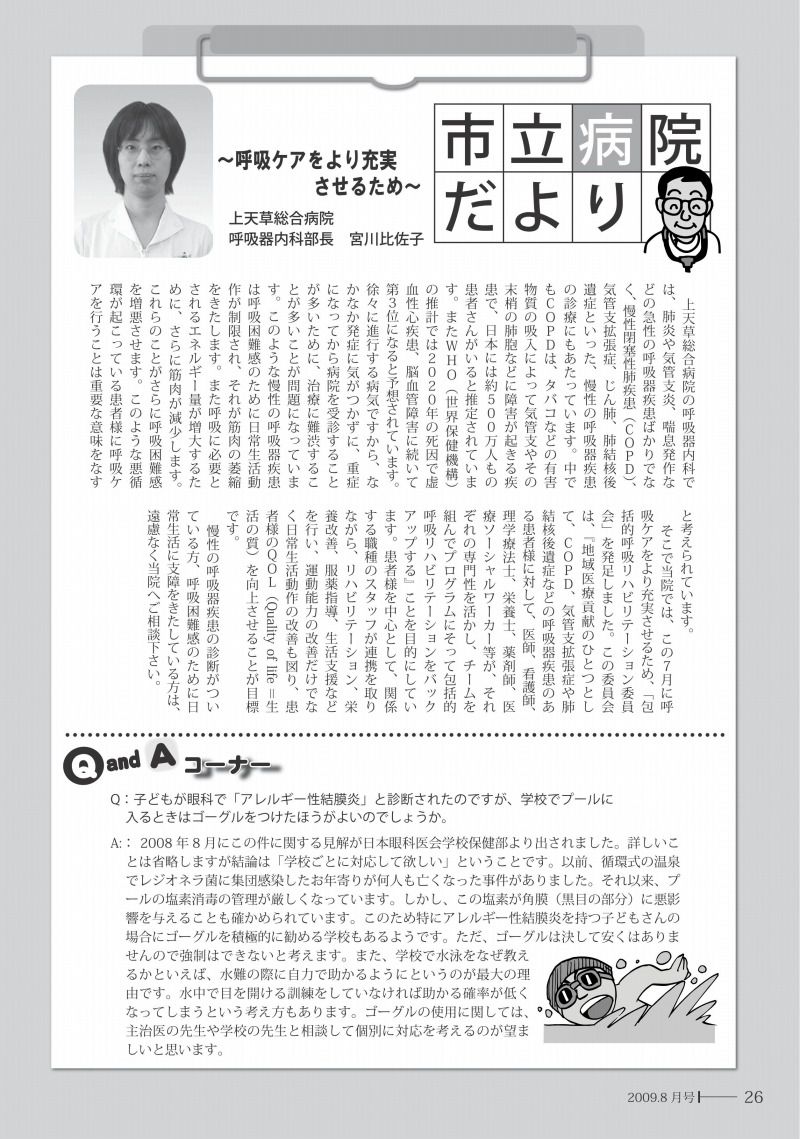 市立病院
だより
～呼吸ケアをより充実
させるため～
上天草総合病院
呼吸器内科部長　宮川比佐子
上天草総合病院の呼吸器内科で
は、肺炎や気管支炎、喘息発作な
どの急性の呼吸器疾患ばかりでな
く、慢性閉塞性肺疾患（COPD）、
気管支拡張症、じん肺、肺結核後
遺症といった、慢性の呼吸器疾患
の診療にもあたっています。中で
もCOPDは、タバコなどの有害
物質の吸入によって気管支やその
末梢の肺胞などに障害が起きる疾
患で、日本には約500万人もの
患者さんがいると推定されていま
す。またWHO（世界保健機構）
の推計では2020年の死因で虚
血性心疾患、脳血管障害に続いて
第3位になると予想されています。
徐々に進行する病気ですから、な
かなか発症に気がつかずに、重症
になってから病院を受診すること
が多いために、治療に難渋するこ
とが多いことが問題になっていま
す。このような慢性の呼吸器疾患
は呼吸困難感のために日常生活動
作が制限され、それが筋肉の萎縮
をきたします。また呼吸に必要と
されるエネルギー量が増大するた
めに、さらに筋肉が減少します。
これらのことがさらに呼吸困難感
を増悪させます。このような悪循
環が起こっている患者様に呼吸ケ
アを行うことは重要な意味をなす
と考えられています。
そこで当院では、この7月に呼
吸ケアをより充実させるため、「包
括的呼吸リハビリテーション委員
会」を発足しました。この委員会
は、『地域医療貢献のひとつとし
て、COPD、気管支拡張症や肺
結核後遺症などの呼吸器疾患のあ
る患者様に対して、医師、看護師、
理学療法士、栄養士、薬剤師、医
療ソーシャルワーカー等が、それ
ぞれの専門性を活かし、チームを
組んでプログラムにそって包括的
呼吸リハビリテーションをバック
アップする』ことを目的にしてい
ます。患者様を中心として、関係
する職種のスタッフが連携を取り
ながら、リハビリテーション、栄
養改善、服薬指導、生活支援など
を行い、運動能力の改善だけでな
く日常生活動作の改善も図り、患
者様のQOL（Quality of life＝生
活の質）を向上させることが目標
です。
慢性の呼吸器疾患の診断がつい
ている方、呼吸困難感のために日
常生活に支障をきたしている方は、
遠慮なく当院へご相談下さい。
Q and A コーナー
Q：子どもが眼科で「アレルギー性結膜炎」と診断されたのですが、学校でプールに
入るときはゴーグルをつけたほうがよいのでしょうか。
A:： 2008年8月にこの件に関する見解が日本眼科医会学校保健部より出されました。詳しいこ
とは省略しますが結論は「学校ごとに対応して欲しい」ということです。以前、循環式の温泉
でレジオネラ菌に集団感染したお年寄りが何人も亡くなった事件がありました。それ以来、プ
ールの塩素消毒の管理が厳しくなっています。しかし、この塩素が角膜（黒目の部分）に悪影
響を与えることも確かめられています。このため特にアレルギー性結膜炎を持つ子どもさんの
場合にゴーグルを積極的に勧める学校もあるようです。ただ、ゴーグルは決して安くはありま
せんので強制はできないと考えます。また、学校で水泳をなぜ教え
るかといえば、水難の際に自力で助かるようにというのが最大の理
由です。水中で目を開ける訓練をしていなければ助かる確率が低く
なってしまうという考え方もあります。ゴーグルの使用に関しては、
主治医の先生や学校の先生と相談して個別に対応を考えるのが望ま
しいと思います。
2009.8月号 26